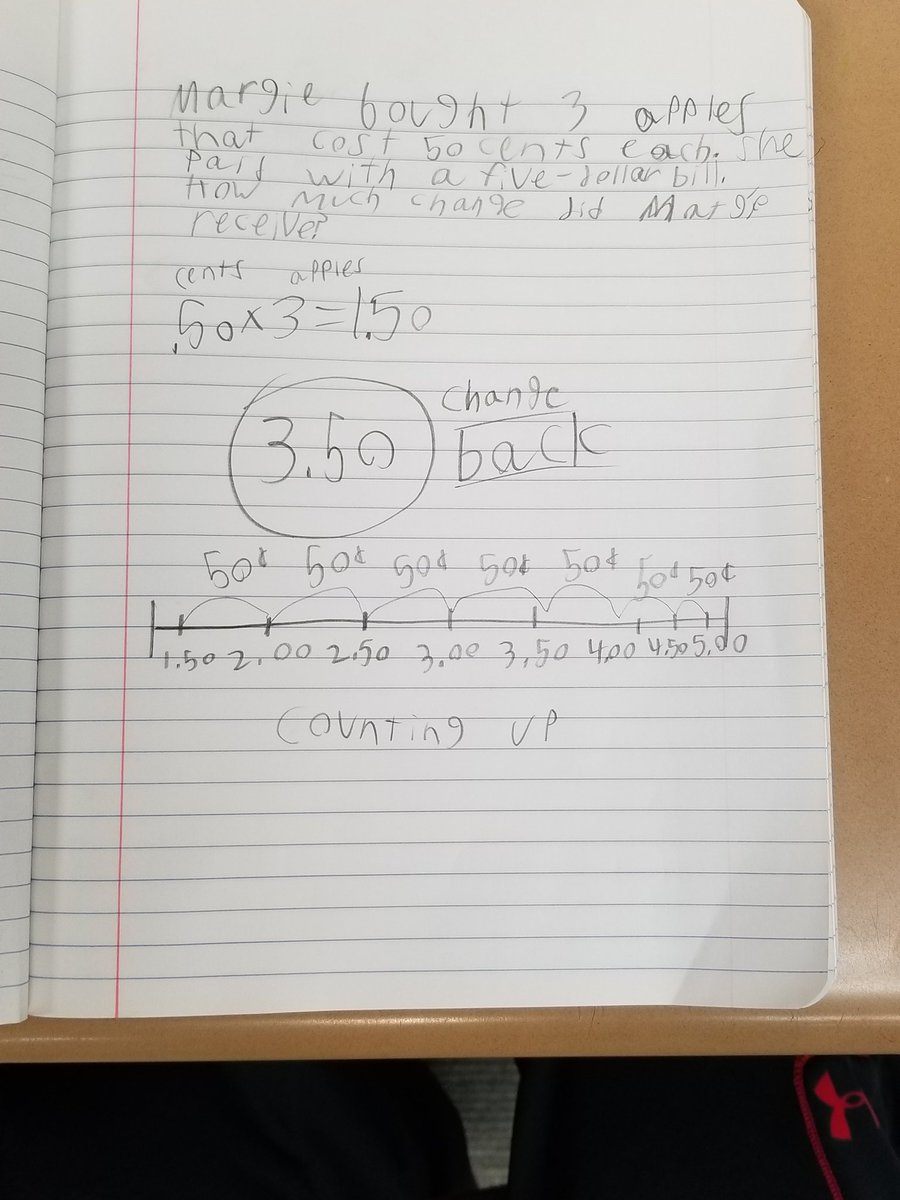 Margie bought 3 apples
that cost 50 cents each. She
paid with a five-dollar bill.
How much change did Margie
receive?
cents apples
.50x3=1.50
3.50 change
back
50¢ 50¢ 50¢ 50¢ 50¢ 50¢ 50¢
1.50 2.00 2.50 3.00 3.50 4.00 4.50 5.00
counting up